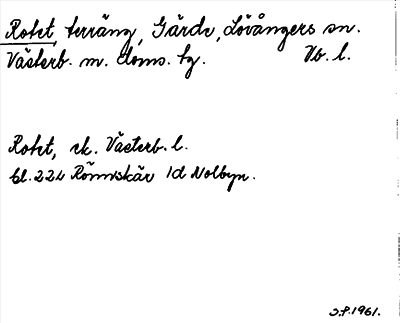 Rotet, terräng, Gärde, Lövångers sn.
Västerb. m. doms. tg. Vb. l.
Rotet, rk. Västerb. l.
bl. 224 Rönnskär 1d Nolbyn.
S.P. 1961.